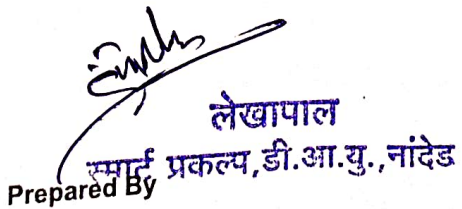 लेखापाल
स्मार्ट प्रकल्प,डी.आ.यु.,नांदेड
Prepared By